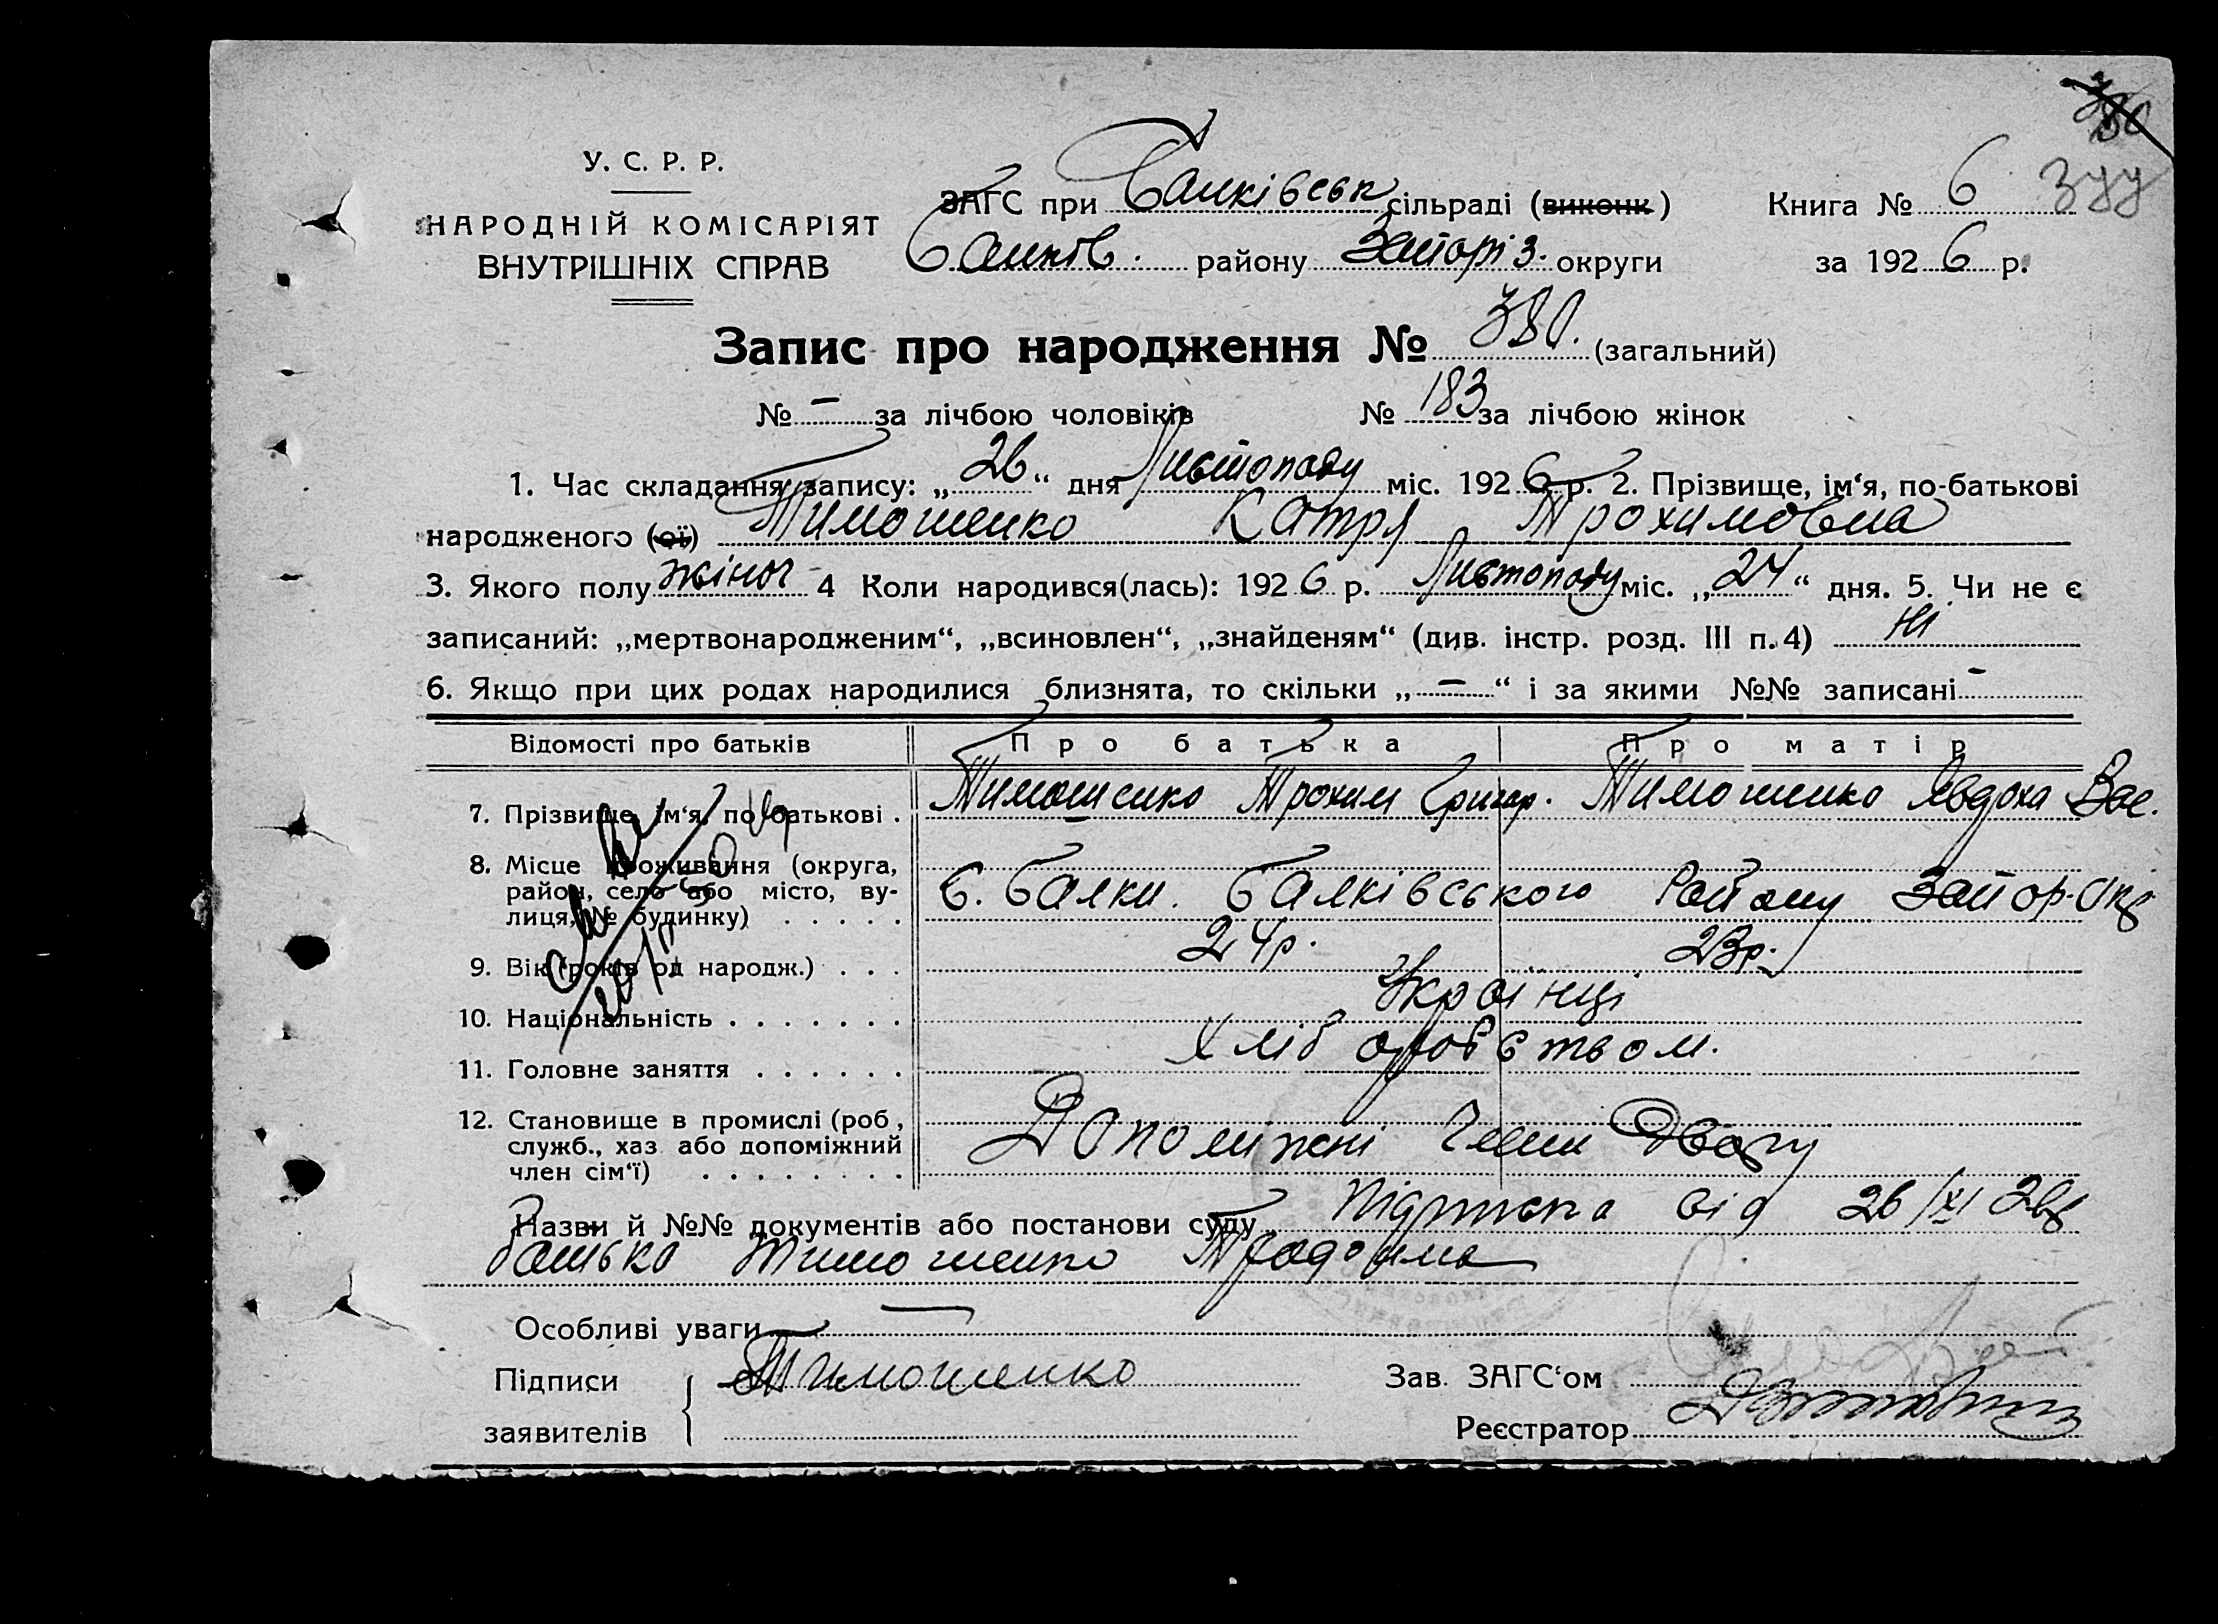 380
377
У. С. Р. Р.
НАРОДНІЙ КОМІСАРІЯТ
ВНУТРІШНІХ СПРАВ
ЗАГС при Балківськ сільраді (виконк)
Балків. району Запоріз. округи
Книга № 6
за 1926 р.
Запис про народження № 380. (загальний)
№ – за лічбою чоловіків № 183 за лічбою жінок
1. Час складання запису: „26“ дня Листопаду міс. 1926 р. 2. Прізвище, ім‘я, по-батькові
народженого (ої) Тимошенко Катря Трохимовна
3. Якого полу жіноч 4 Коли народився(лась): 1926 р. Листопаду міс. „24“ дня. 5. Чи не є
записаний: „мертвонародженим“, „всиновлен“, „знайденям“ (див. інстр. розд. III п. 4) Ні
6. Якщо при цих родах народилися близнята, то скільки „–“ і за якими №№ записані –
Відомості про батьків Про батька Про матір
7. Прізвище, ім‘я, по батькові . Тимошенко Трохим Григор. Тимошенко Явдоха Вас.
8. Місце проживання (округа,
район, село або місто, ву-
лиця, № будинку) . . . . . С. Балки. Балківського Району Запор. Окр
9. Вік (років од народж.) . . . 24р. 23р.
10. Національність . . . . . . . Українці
11. Головне заняття . . . . . . Хліборобством.
12. Становище в промислі (роб,
служб., хаз або допоміжний
член сім‘ї) . . . . . . . . Допоміжні Члени Двору
Назви й №№ документів або постанови суду Підписка від 26/XI 26р
батька Тимошенко
Особливі уваги –
Підписи
заявителів
Тимошенко
Зав. ЗАГС‘ом
Реєстратор